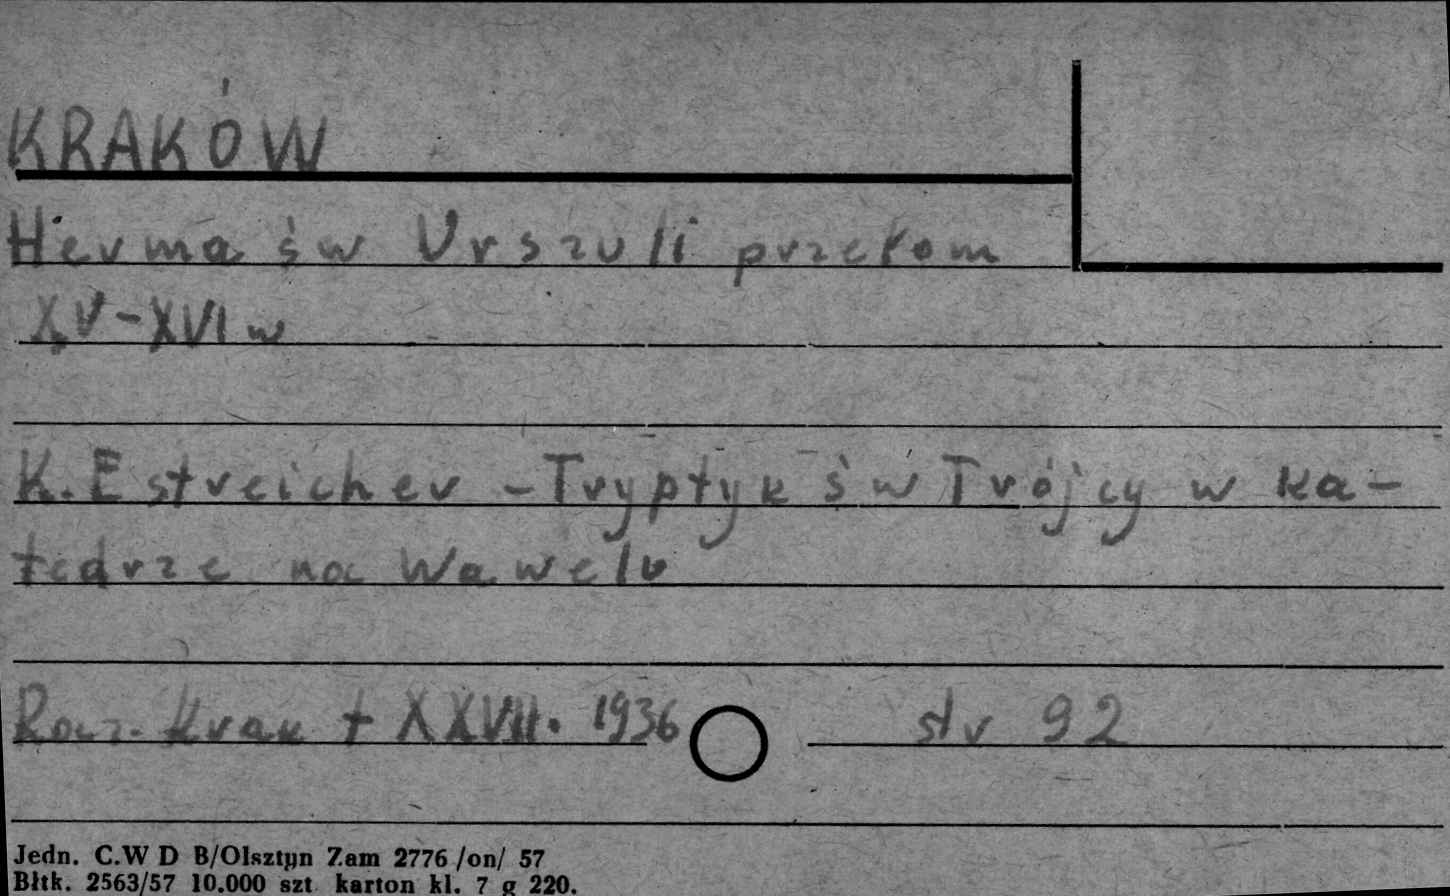 KRAKÓW
Herma św Urszuli przełom
XV-XVI w
K. Estreicher - Tryptyk św Trójcy w ka-
tedrze na Wawelu
Rocz. Krak t XXVII. 1936 str 92
Jedn. C.W D B/Olsztyn Zam 2776 /on/ 57
Błtk. 2563/57 10.000 szt karton kl. 7 g 220.